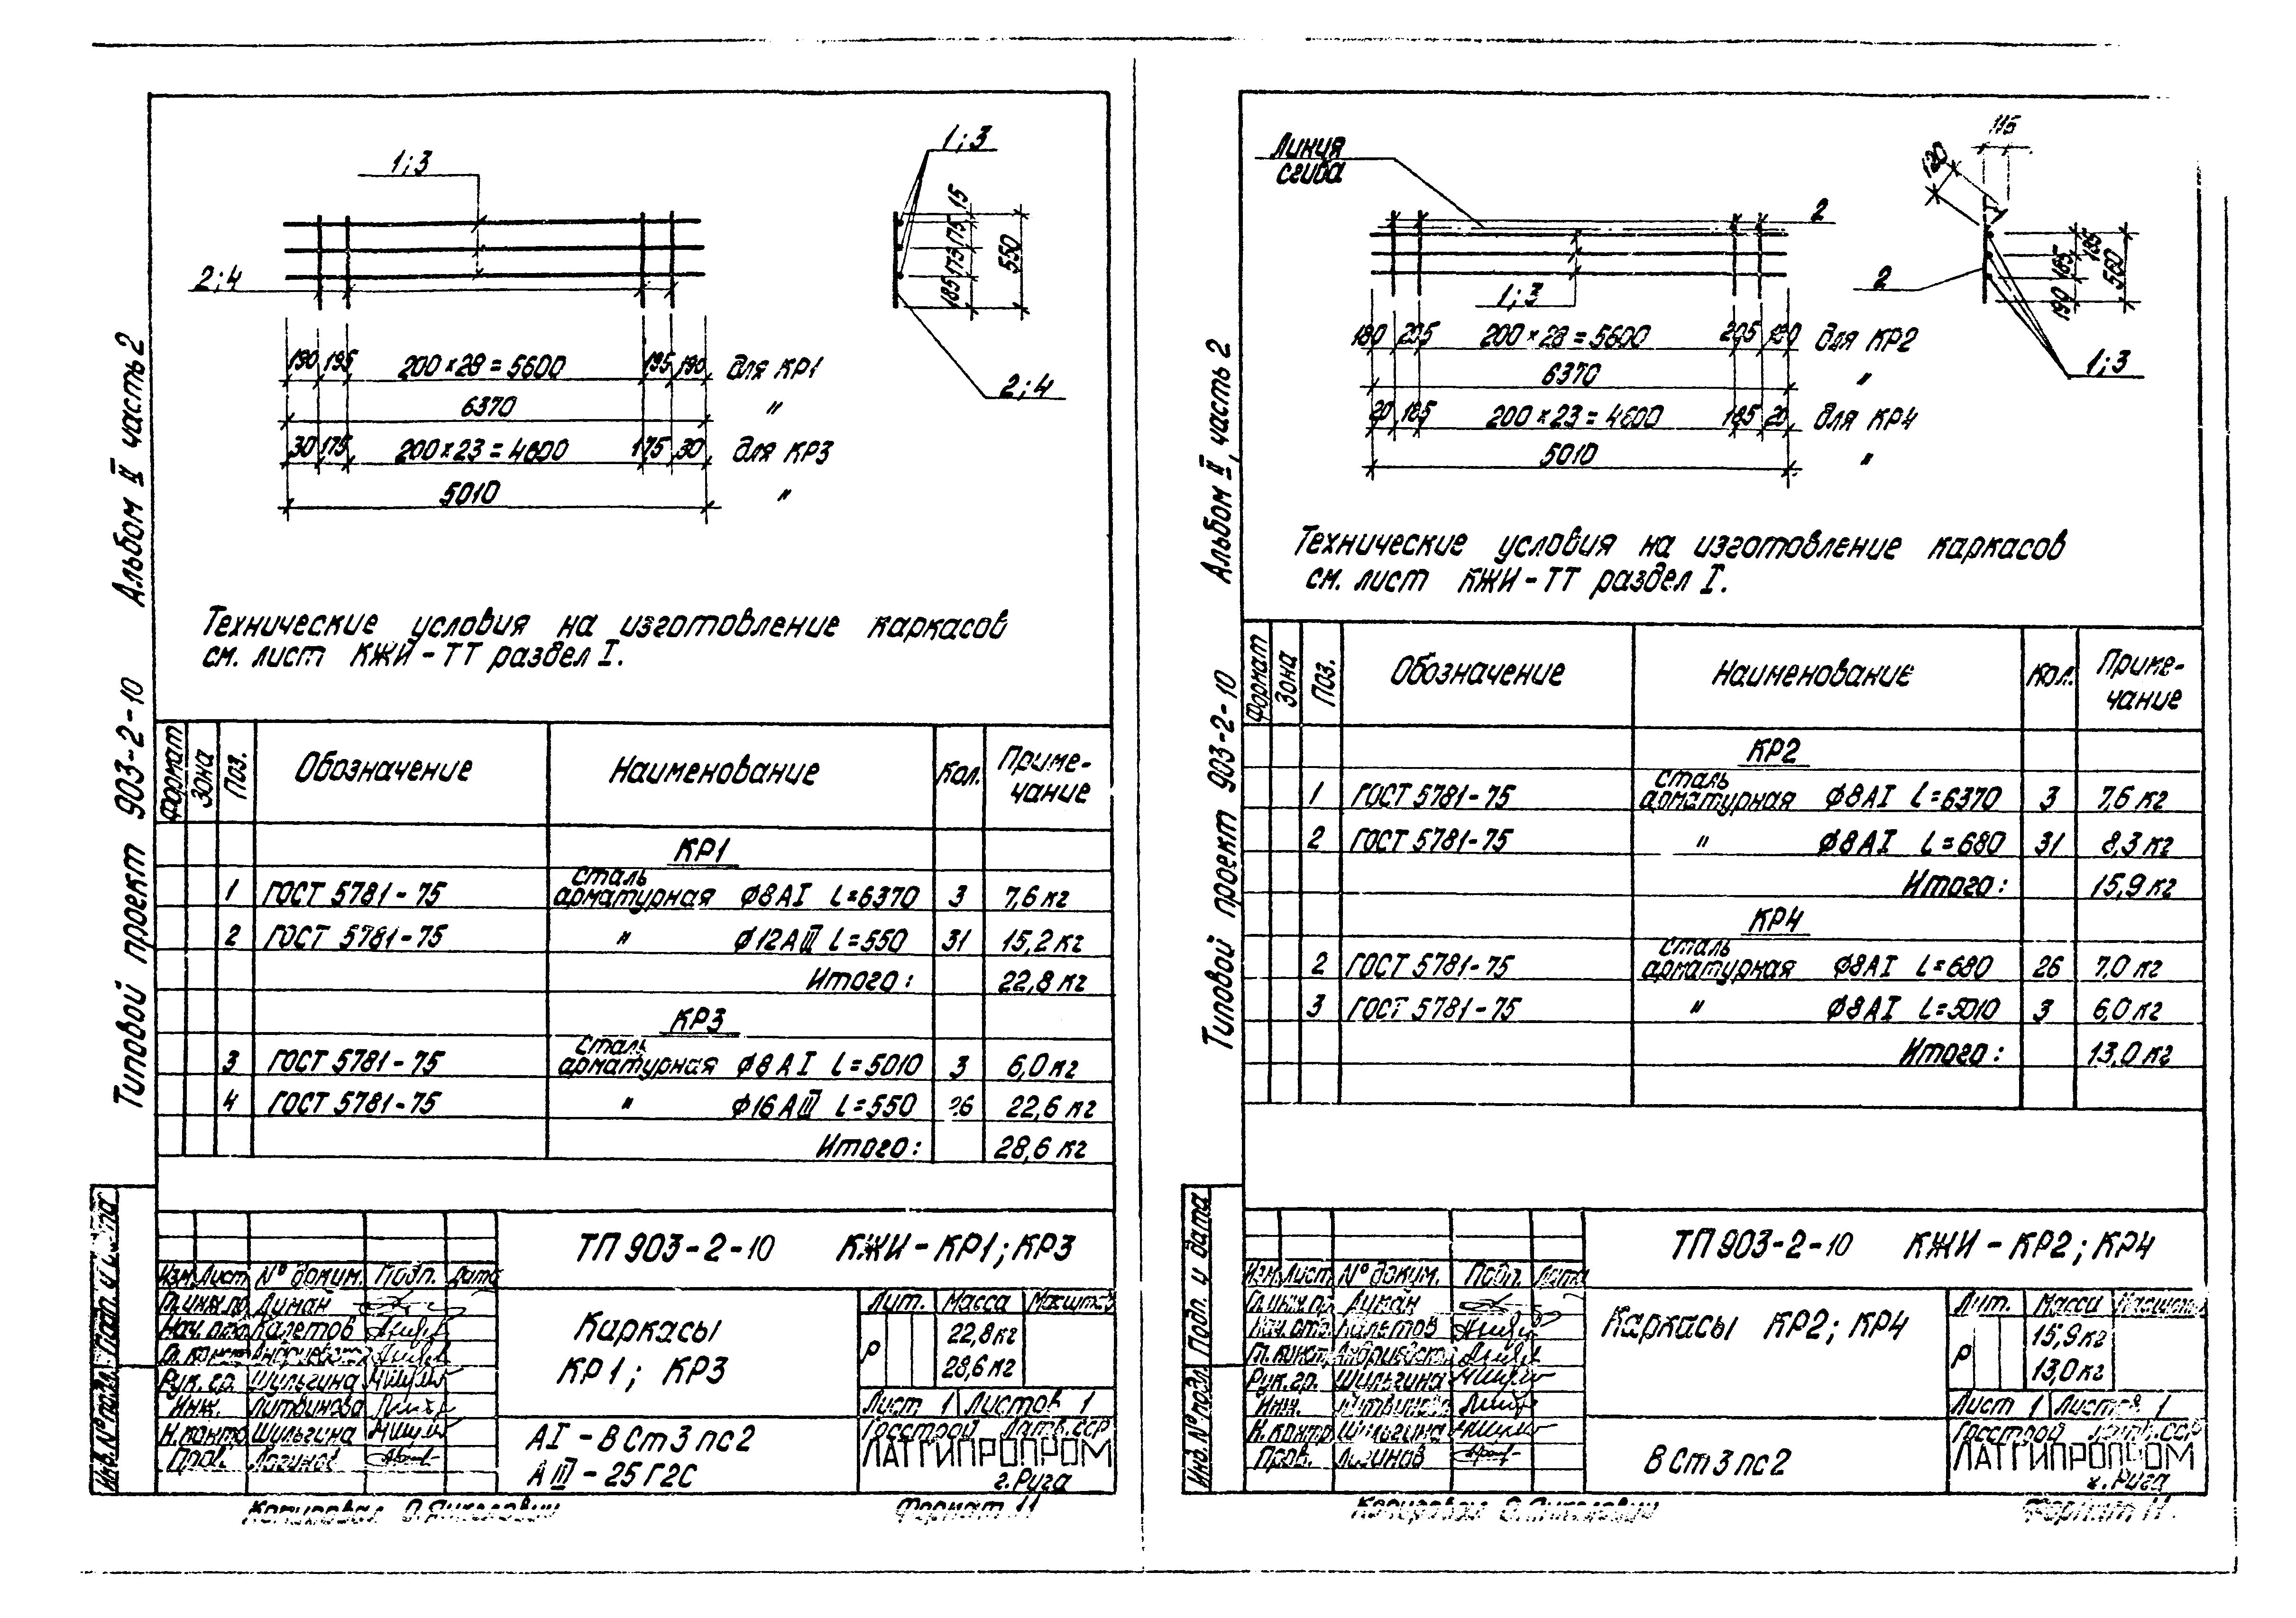 Типовой проект 903-2-10 Альбом II часть 2
1;3
2;4
190 195 200×28=5600 195 190 для КР1
6370 "
30 175 200×23=4600 175 30 для КР3
5010 "
1;3
15
175
175
185
550
2;4
Технические условия на изготовление каркасов
см. лист КЖИ-ТТ раздел I.
Формат Зона Поз. Обозначение Наименование Кол. Приме-
чание
КР1
1 ГОСТ 5781-75 сталь арматурная ϕ8АI L=6370 3 7,6 кг
2 ГОСТ 5781-75 " ϕ12АIII L=550 31 15,2 кг
Итого: 22,8 кг
КР3
3 ГОСТ 5781-75 сталь арматурная ϕ8АI L=5010 3 6,0 кг
4 ГОСТ 5781-75 " ϕ16АIII L=550 26 22,6 кг
Итого: 28,6 кг
ТП 903-2-10 КЖИ-КР1; КР3
Изм. Лист № докум. Подп. Дата
Гл. инж. пр.
Нач. отд. Калетов
Гл. констр.
Рук. гр. Шульгина
Инж. Литвинова
Н. контр. Шульгина
Пров. Логинов
Каркасы
КР1; КР3
Лит. Масса Масштаб
Р 22,8 кг
28,6 кг
Лист 1 Листов 1
АI - ВСт3пс2
АIII - 25Г2С
Госстрой Латв.ССР
ЛАТГИПРОПРОМ
г. Рига
Подп. и дата
Инв. № подл.
Копировал
Формат 11
Типовой проект 903-2-10 Альбом II, часть 2
Линия
сгиба
2
1;3
180 205 200×28=5600 205 180 для КР2
6370 "
20 185 200×23=4600 185 20 для КР4
5010 "
115
120
185
185
190
560
2
1;3
Технические условия на изготовление каркасов
см. лист КЖИ-ТТ раздел I.
Формат Зона Поз. Обозначение Наименование Кол. Приме-
чание
КР2
1 ГОСТ 5781-75 сталь арматурная ϕ8АI L=6370 3 7,6 кг
2 ГОСТ 5781-75 " ϕ8АI L=680 31 8,3 кг
Итого: 15,9 кг
КР4
2 ГОСТ 5781-75 сталь арматурная ϕ8АI L=680 26 7,0 кг
3 ГОСТ 5781-75 " ϕ8АI L=5010 3 6,0 кг
Итого: 13,0 кг
ТП 903-2-10 КЖИ-КР2; КР4
Изм. Лист № докум. Подп. Дата
Гл. инж. пр.
Нач. отд. Калетов
Гл. констр.
Рук. гр. Шульгина
Инж. Литвинова
Н. контр. Шульгина
Пров. Логинов
Каркасы КР2; КР4
Лит. Масса Масштаб
Р 15,9 кг
13,0 кг
Лист 1 Листов 1
ВСт3пс2
Госстрой Латв.ССР
ЛАТГИПРОПРОМ
г. Рига
Подп. и дата
Инв. № подл.
Копировал
Формат 11